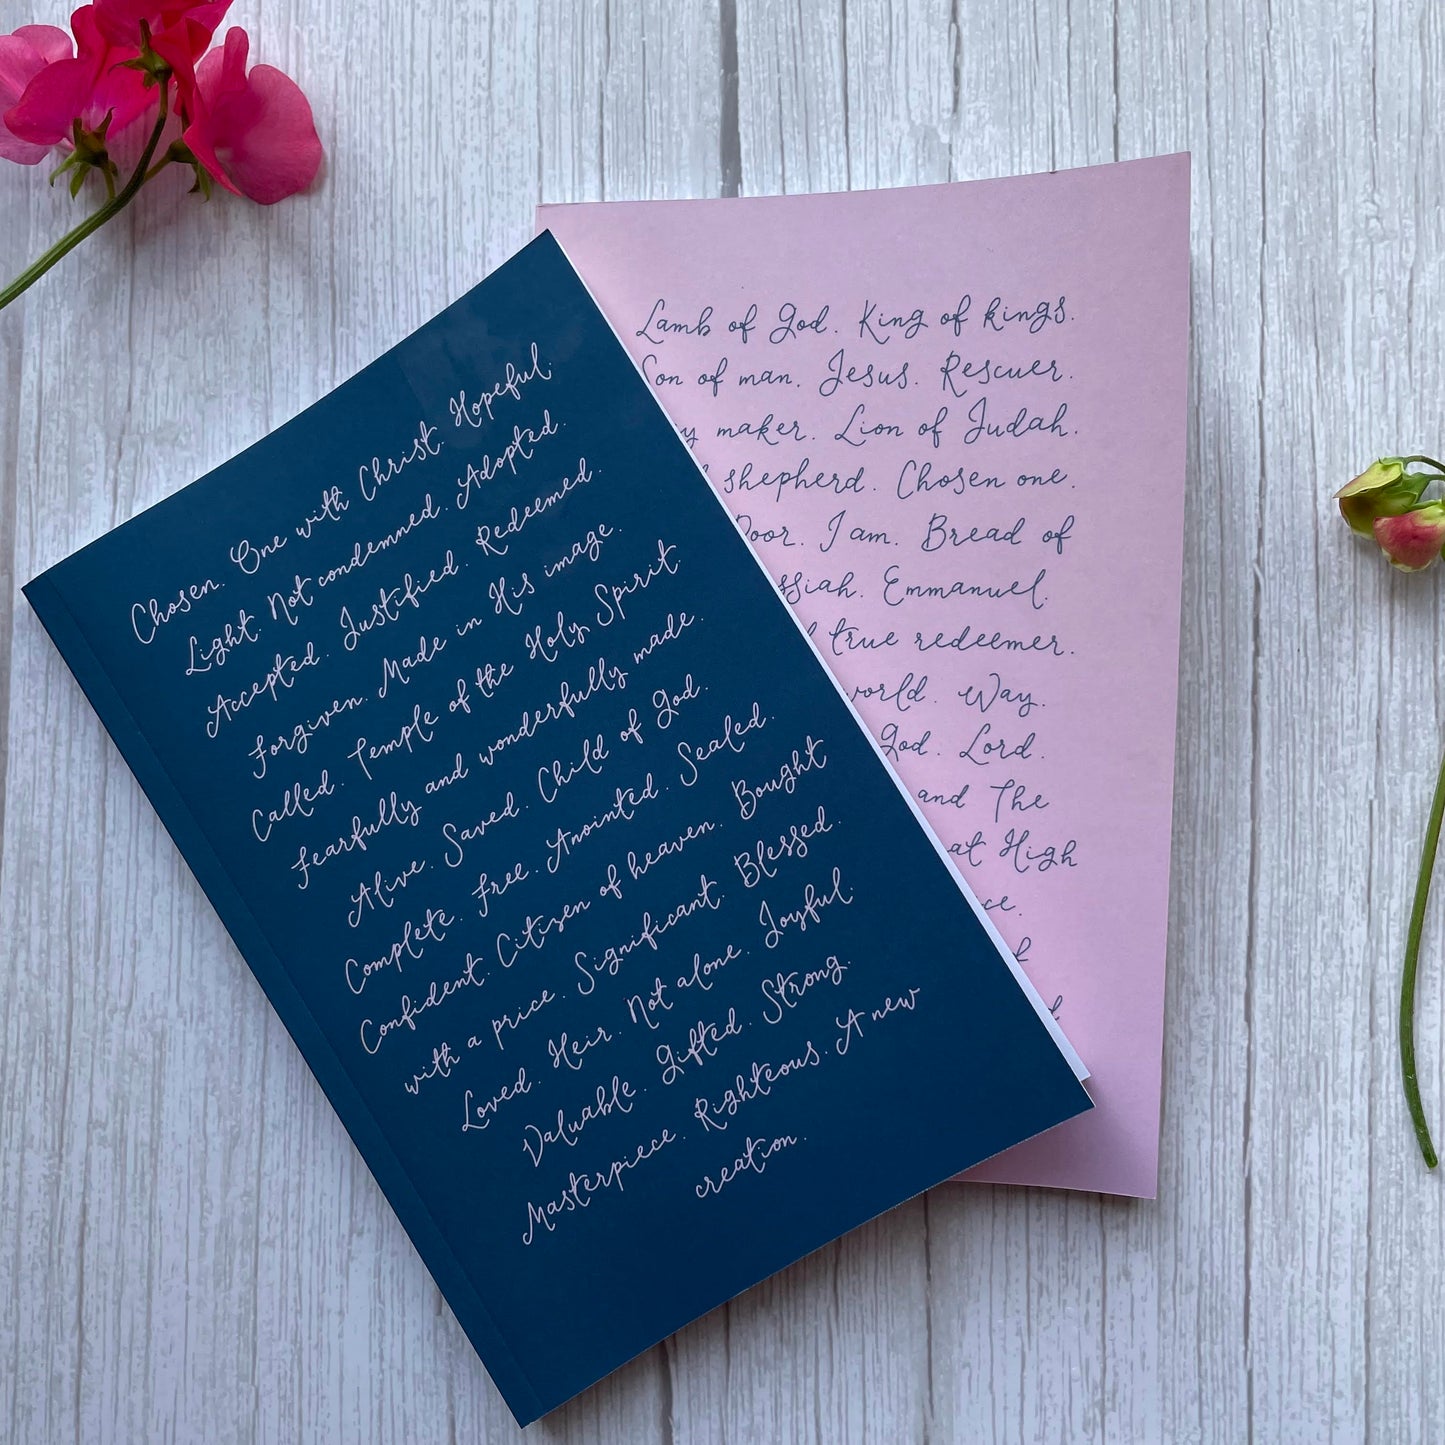 Chosen. One with Christ. Hopeful.
Light. Not condemned. Adopted.
Accepted. Justified. Redeemed.
Forgiven. Made in His image.
Called. Temple of the Holy Spirit.
Fearfully and wonderfully made.
Alive. Saved. Child of God.
Complete. Free. Anointed. Sealed.
Confident. Citizen of heaven. Bought
with a price. Significant. Blessed.
Loved. Heir. Not alone. Joyful.
Valuable. Gifted. Strong.
Masterpiece. Righteous. A new
creation.
Lamb of God. King of kings.
Son of man. Jesus. Rescuer.
maker. Lion of Judah.
shepherd. Chosen one.
Door. I am. Bread of
Emmanuel.
true redeemer.
world. Way.
God. Lord.
and The
High